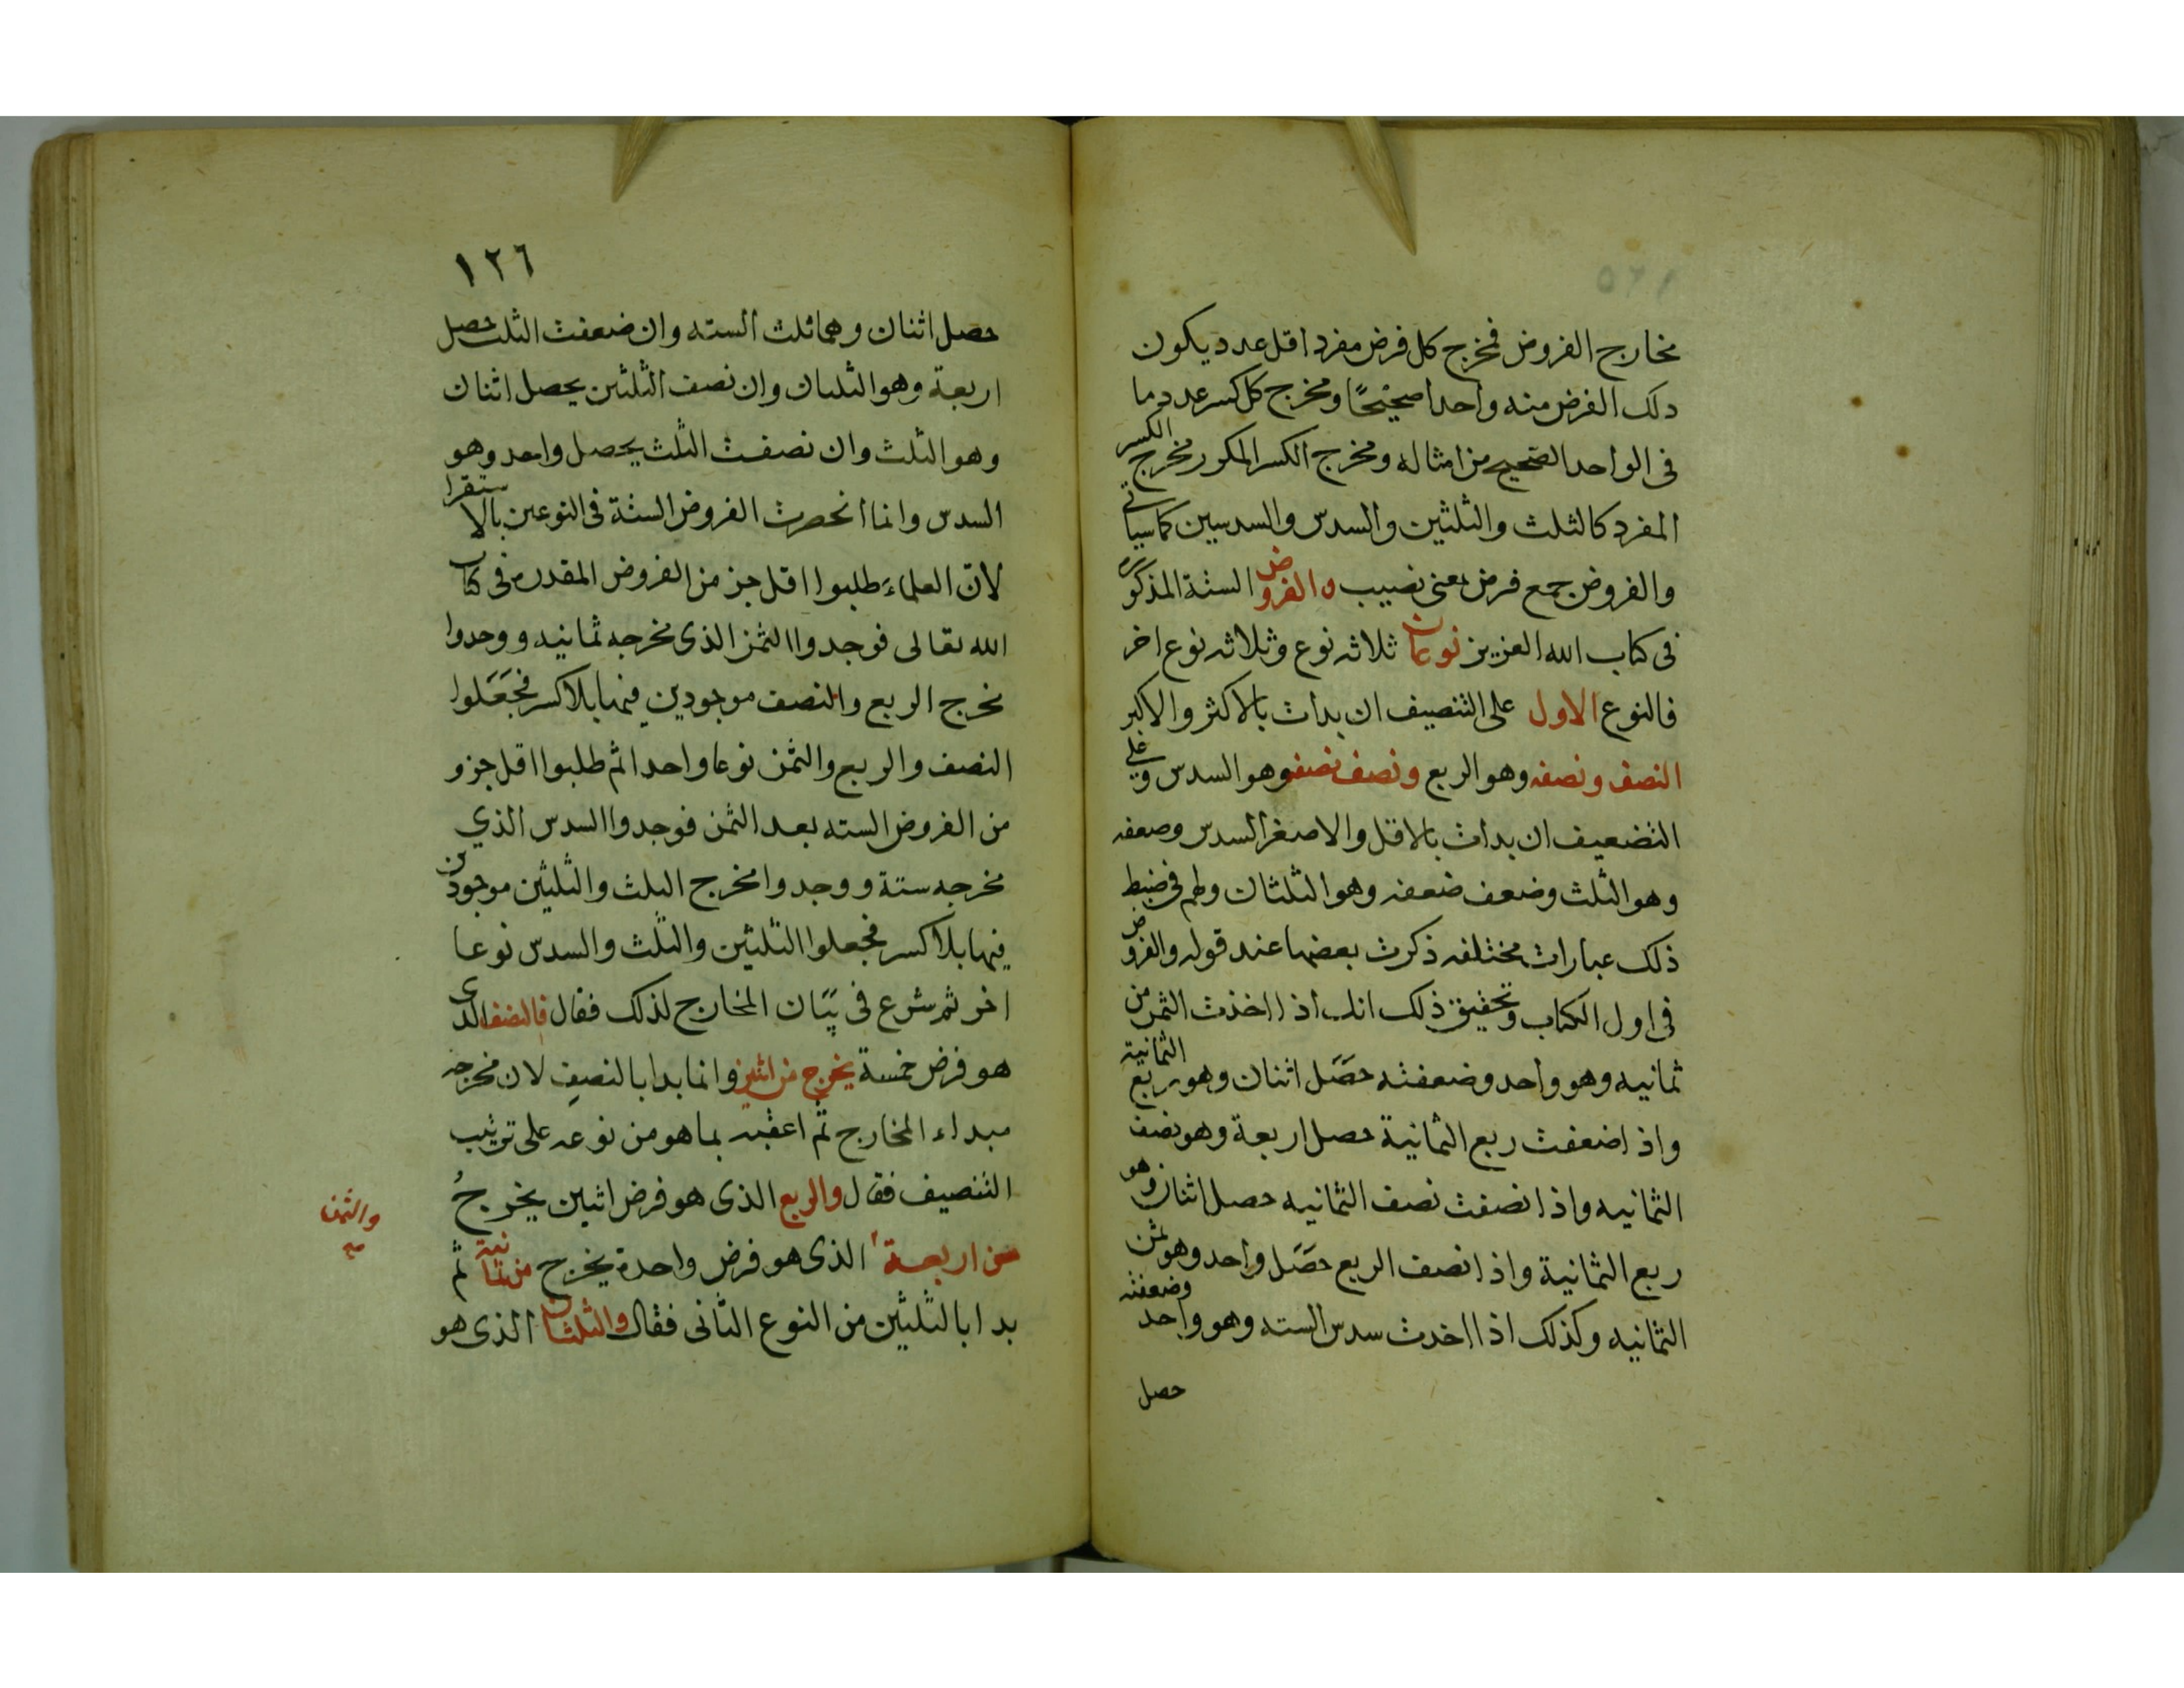 مخارج الفروض فمخرج كل فرض مفرد اقل عدد يكون
ذلك الفرض منه واحدا صحيحًا ومخرج كل كسر عدد ما
فى الواحد الصحيح من امثاله ومخرج الكسر المكرر مخرج الكسر
المفرد كالثلث والثلثين والسدس والسدسين كما سياتى
والفروض جمع فرض بمعنى نصيب والفروض الستة المذكوره
فى كتاب الله العزيز نوعان ثلاثه نوع وثلاثه نوع اخر
فالنوع الاول على التنصيف ان بدات بالاكثر والاكبر
النصف ونصفه وهو الربع ونصف نصفه وهو السدس وعلى
التضعيف ان بدات بالاقل والاصغر السدس وضعفه
وهو الثلث وضعف ضعفه وهو الثلثان ولهم فى ضبط
ذلك عبارات مختلفه ذكرت بعضها عند قوله والفروض
فى اول الكتاب وتحقيق ذلك انك اذا اخذت الثمن من
ثمانيه وهو واحد وضعفته حصَل اثنان وهو ربع الثمانية
واذا ضعفت ربع الثمانية حصل اربعة وهو نصف
الثمانيه واذا نصفت نصف الثمانيه حصل اثنان وهو
ربع الثمانية واذا نصف الربع حصَل واحد وهو ثمن
الثمانيه وكذلك اذا اخدت سدس السته وهو واحد وضعفته
حصل
١٢٦
حصل اثنان وهما ثلث السته وان ضعفت الثلث حصل
اربعة وهو الثلثان وان نصف الثلثين يحصل اثنان
وهو الثلث وان نصفت الثلث يحصل واحد وهو
السدس وانما انحصرت الفروض الستة فى النوعين بالاستقرا
لان العلماء طلبوا اقل جز من الفروض المقدره فى كتاب
الله تعالى فوجدوا الثمن الذى مخرجه ثمانيه ووجدوا
مخرج الربع والنصف موجودين فيها بلا كسر فجَعَلوا
النصف والربع والثمن نوعا واحدا ثم طلبوا اقل جزو
من الفروض السته بعد الثمن فوجدوا السدس الذي
مخرجه ستة ووجدوا مخرج الثلث والثلثين موجودين
فيها بلا كسر فجعلوا الثلثين والثلث والسدس نوعا
اخر ثم شرع فى بيَان المخارج لذلك فقال فالنصف الذى
هو فرض خمسة يخرج من اثنين وانما بدا بالنصف لان مخرجه
مبداء المخارج ثم اعقبه بما هو من نوعه على ترتيب
التنصيف فقال والربع الذى هو فرض اثنين يخرجُ
من اربعة الذى هو فرض واحدة يخرج من ثمانية ثم
والثمن
صح
بدا بالثلثين من النوع الثانى فقال والثلثان الذى هو